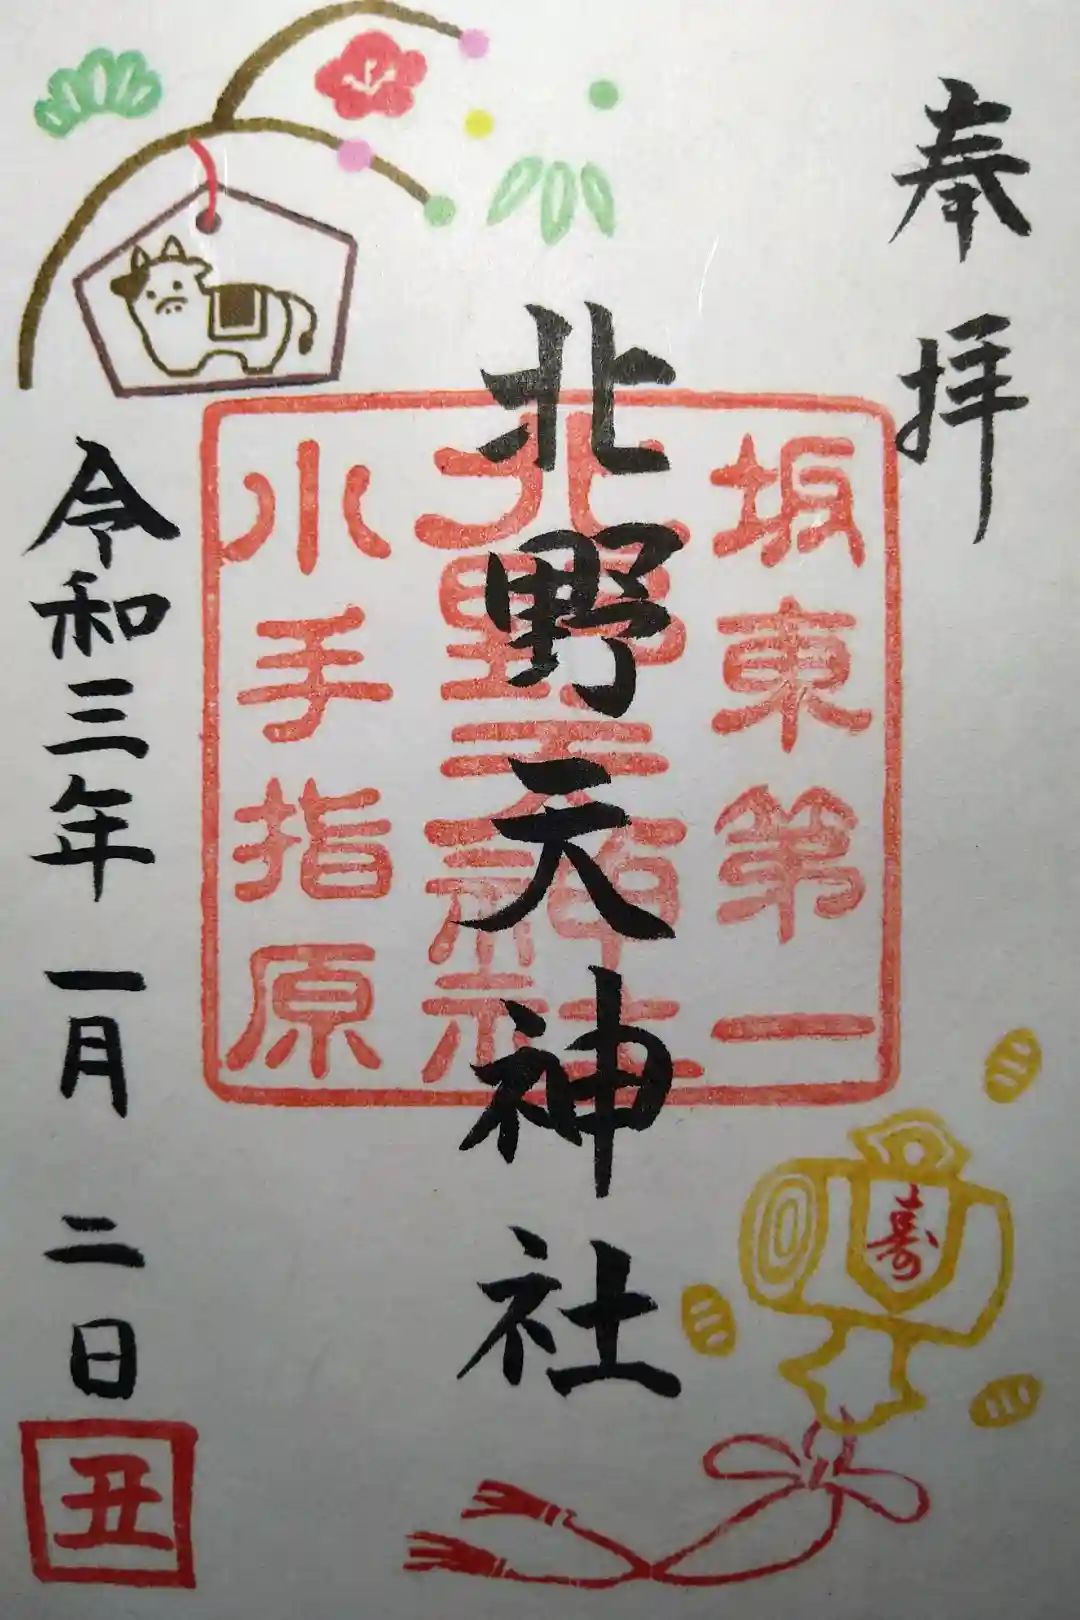 奉拝
坂東第一
北野天神社
北野天神社
小手指原
令和三年一月二日
丑
寿